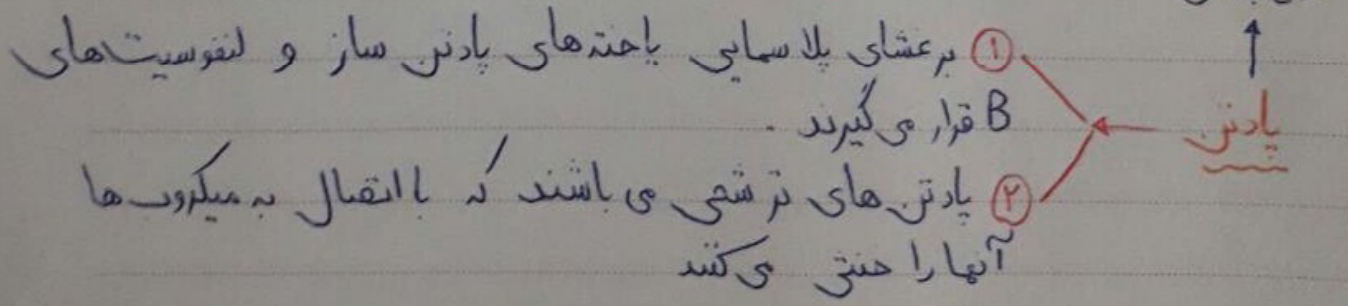 ① برغشای پلاسمایی یاخته‌های پادتن ساز و لنفوسیت‌های
B قرار می گیرند .
پادتن
② پادتن های ترشحی می باشند که با اتصال به میکروب ها
آنها را خنثی می کنند